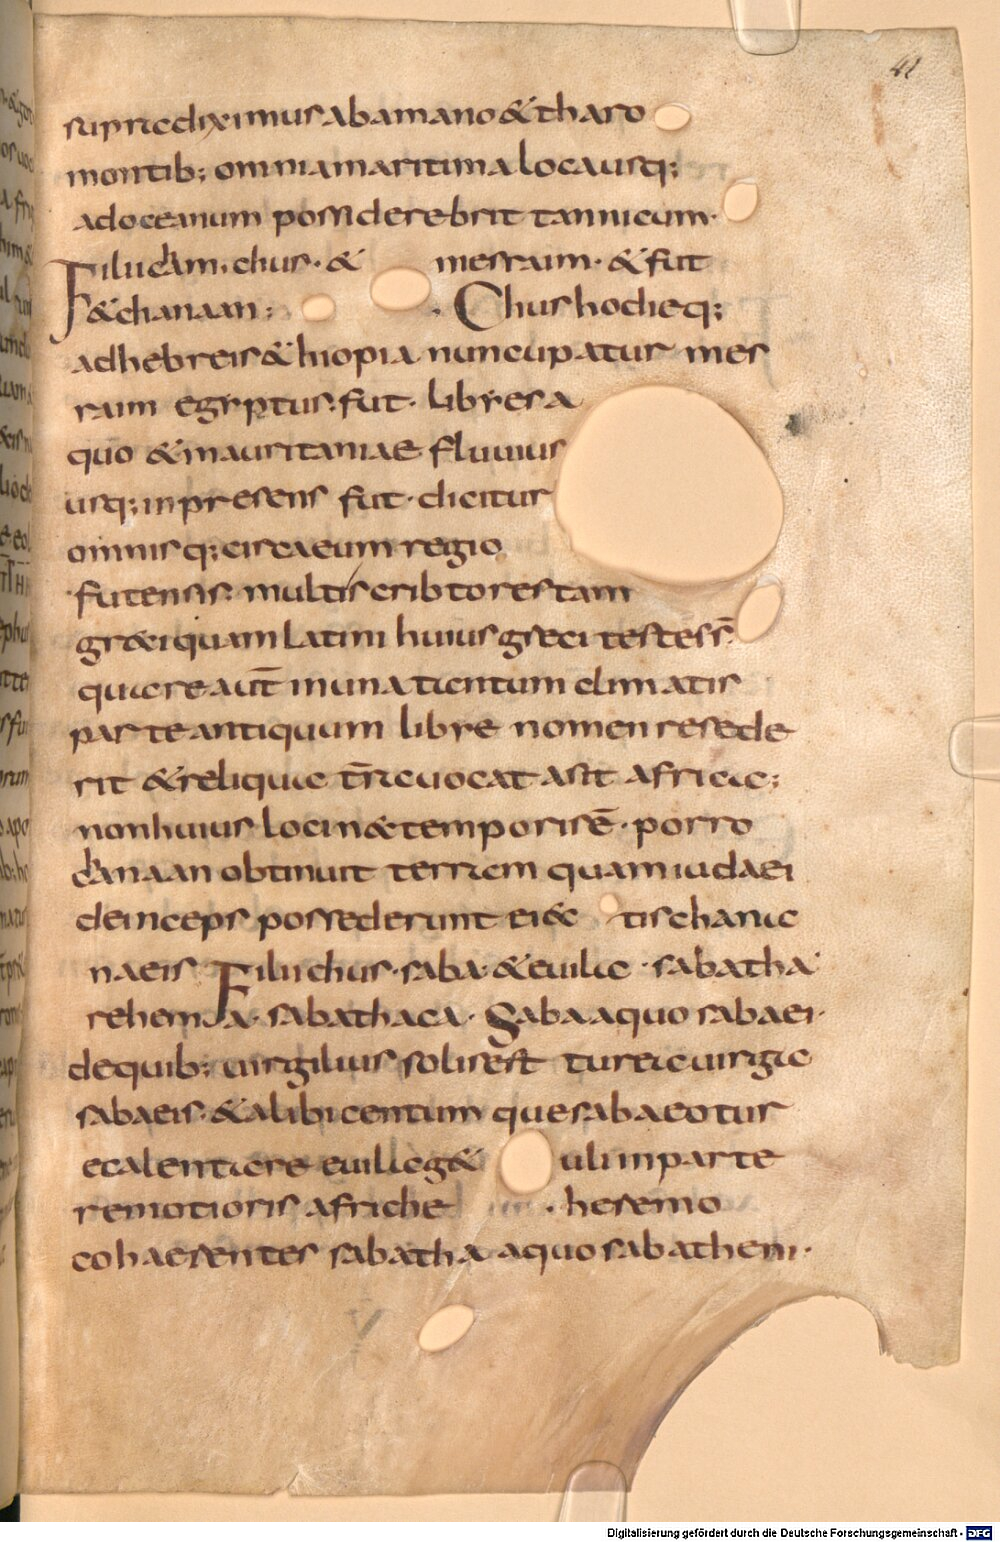 42
supra diximus ab amano & thauro
montib; omnia maritima loca usq;
ad oceanum possiderebrittannicum·
Filii cham. chus· & mesraim· & fut
& chanaan; · Chus hodieq;
ad hebreis &hiopia nuncupatur mes
raim egyptus· fut· libyes a
quo & mauritaniae fluuius
usq; in presens fut· dicitur
omnisq; circa eum regio
futensis multi scribtores tam
greci quam latini huius greci testes s̄
qui creaut̄ in una tientum climatis
parte antiquum libye nomen resede
rit & reliquic t̄ric uocat ast africc;
non huius loci n& temporis ē· porro
chanaan obtinuit terram quam iudaei
deinceps possederunt eiec tis chanic
naeis Filii chus· saba· & euilic · sabatha
rehema· sabathaca· Saba a quo sabaei·
de quib; uirgilius solis est turea uirga
sabaeis· & alibi centum que sabaeo tus
ecalent arae euilic g& uli in parte
remotioris afriche · heremo
cohaerentes sabatha a quo sabatheni·
Digitalisierung gefördert durch die Deutsche Forschungsgemeinschaft - DFG